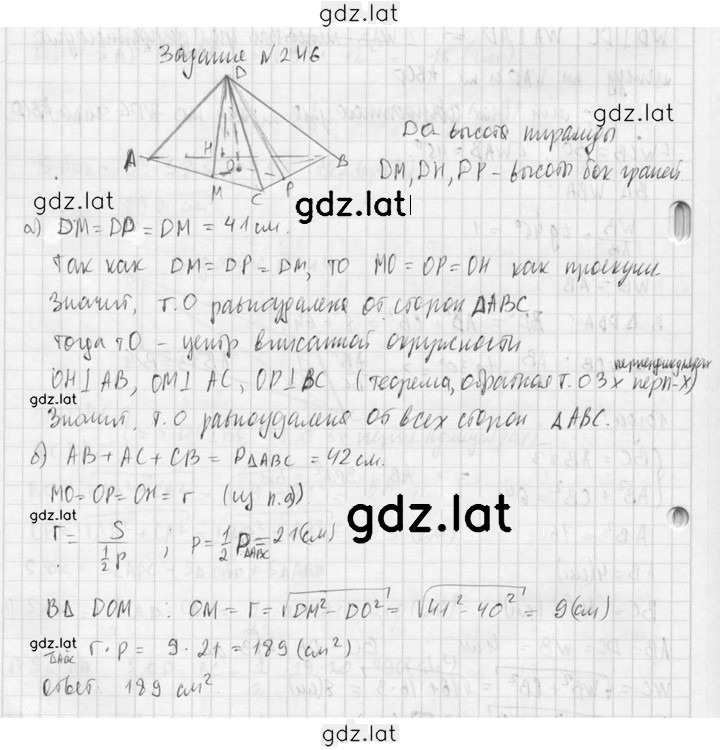 gdz.lat
Задание N 246
D
gdz.lat
DO высота пирамиды
A H O B
M C P
DM, DH, DP - высоты бок граней
gdz.lat
а) DM = DP = DM = 41 см.
Так как DM = DP = DM, то MO = OP = OH как проекции
Значит, т.О равноудалена от сторон ΔABC
тогда т.О - центр вписанной окружности
перпендикулярах
OH⊥AB, OM⊥AC, OP⊥BC (теорема, обратная т. о 3х перп-х)
gdz.lat
Значит, т.О равноудалена от всех сторон ΔABC.
б) AB + AC + CB = PΔABC = 42 см.
MO = OP = OH = r (из п.а))
gdz.lat
gdz.lat
r = S / ½p ; p = ½ PΔABC = 21 (см)
ВΔ DOM : OM = r = √DM² - DO² = √41² - 40² = 9 (см)
gdz.lat
ΔABC r · p = 9 · 21 = 189 (см²)
ответ: 189 см²
gdz.lat